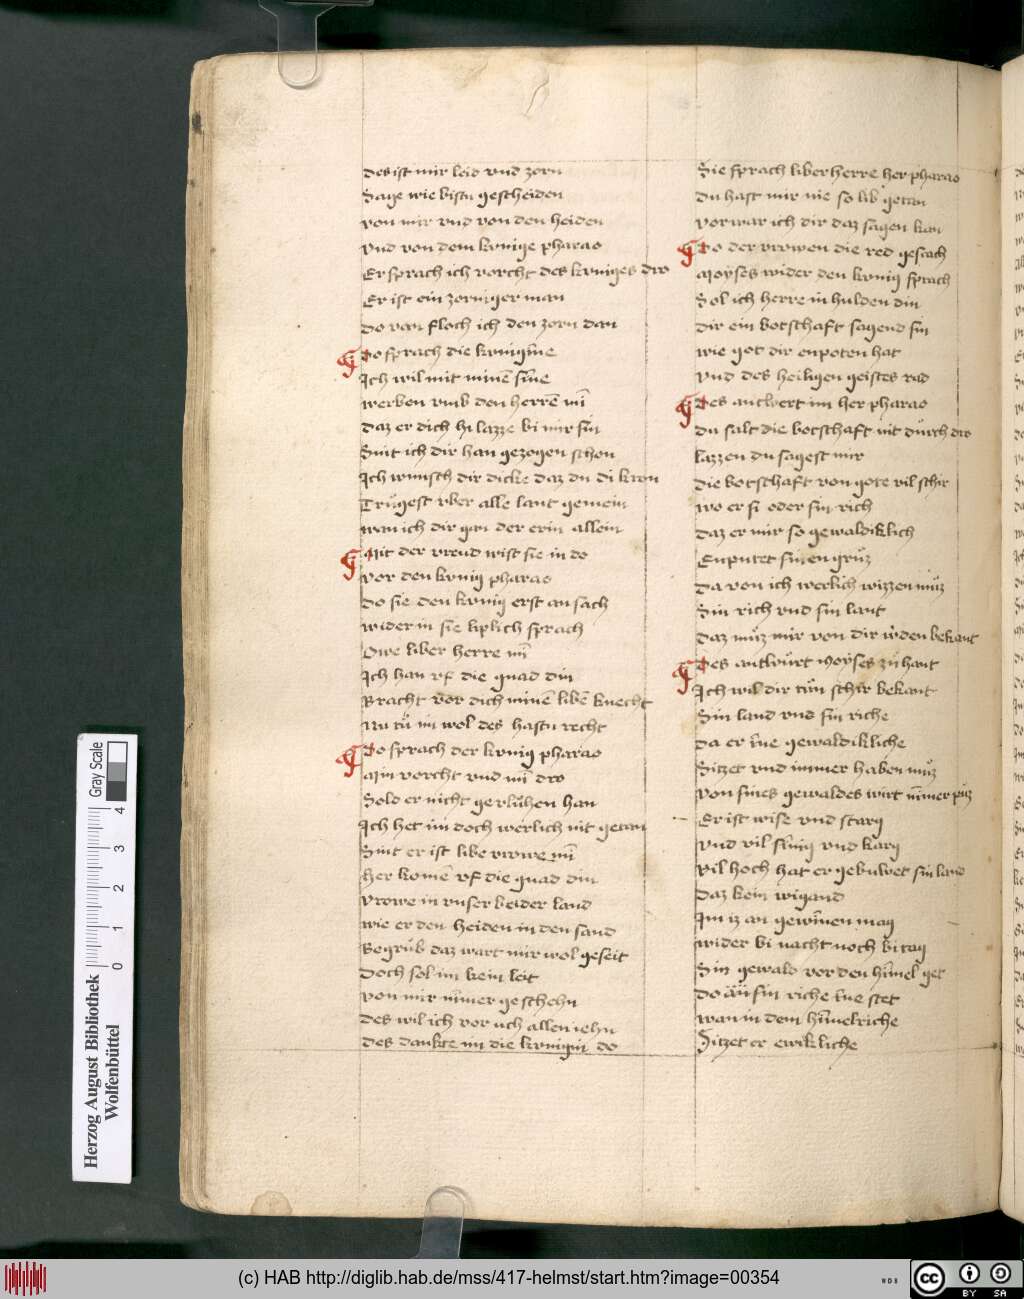 Des ist mir leid vnd zorn
Sage wie bistu gescheiden
von mir vnd von den heiden
vnd von dem kvnige pharao
Er sprach ich vorcht des kvniges dro
Er ist ein zorniger man
do van floch ich den zorn dan
Do sprach die kvnigīne
Ich wil mit minē sīne
werben vmb den herrē mī
daz er dich hi lazze bi mir sin
Sint ich dir han gezogen schon
Ich wunsch dir dicke daz du di kron
Trugest vber alle lant gemein
wan ich dir gan der erin allein
Mit der vreud wist sie in do
vor den kvnig pharao
do sie den kvnig erst an sach
wider in sie liplich sprach
Owe liber herre mī
Ich han vf die gnad din
Bracht vor dich minē libē knecht
Nu tů im wol des hastu recht
Do sprach der kvnig pharao
Min vorcht vnd mī dro
Sold er nicht gevluhen han
Ich het im doch werlich nit getan
Sint er ist libe vrowe mī
her komē vf die gnad din
vrowe in vnser beider land
wie er den heiden in den sand
Begrub daz wart mir wol geseit
Doch sol im kein leit
von mir nīmer geschehn
des wil ich vor uch allen iehn
des dankte im die kvnigin do
Sie sprach liber herre her pharao
du hast mir nie so lib getan
vorwar ich dir daz sagen kan
Do der vrowen die red gescach
Moyses wider den kvnig sprach
Sol ich herre in hulden din
dir ein botschaft sagend sin
wie got dir enpoten hat
vnd des heiligen geistes rad
Des antwert im her pharao
du salt die botschaft nit durch dro
lazzen du sagest mir
die botschaft von gote vil schir
wo er si oder sin rich
daz er mir so gewaldiklich
Enputet sinen gruz
da von ich werlich wizzen můz
Sin rich vnd sin lant
daz můz mir von dir wden bekant
Des antwurt Moyses zů hant
Ich wil dir tůn schir bekant
Sin land vnd sin riche
da er īne gewaldikliche
Sitzet vnd immer haben můz
von sines gewaldes wirt nīmer puz
Er ist wise vnd starg
vnd vil sinig vnd karg
vil hoch hat er gebuwet sin land
daz kein wigand
Im iz an gewīnen mag
wider bi nacht noch bi tag
Sin gewald vor den hīmel get
do sin riche īne stet
wan in dem hīmelriche
Sitzet er ewikliche
Gray Scale
0 1 2 3 4
Herzog August Bibliothek
Wolfenbüttel
(c) HAB http://diglib.hab.de/mss/417-helmst/start.htm?image=00354
WDB
cc
BY SA